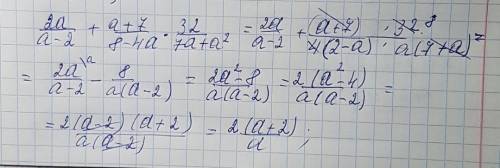 2a/(a-2) + (a+7)/(8-4a) · 32/(7a+a²) = 2a/(a-2) + (a+7)·32⁸/(4(2-a)·a(7+a)) =
= 2a\ᵃ/(a-2) - 8/(a(a-2)) = (2a²-8)/(a(a-2)) = 2(a²-4)/(a(a-2)) =
= 2(a-2)(a+2)/(a(a-2)) = 2(a+2)/a ;